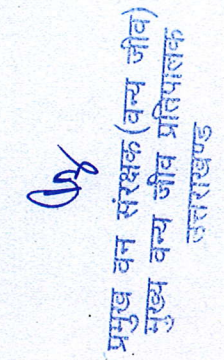 प्रमुख वन संरक्षक(वन्य जीव)
मुख्य वन्य जीव प्रतिपालक
उत्तराखण्ड